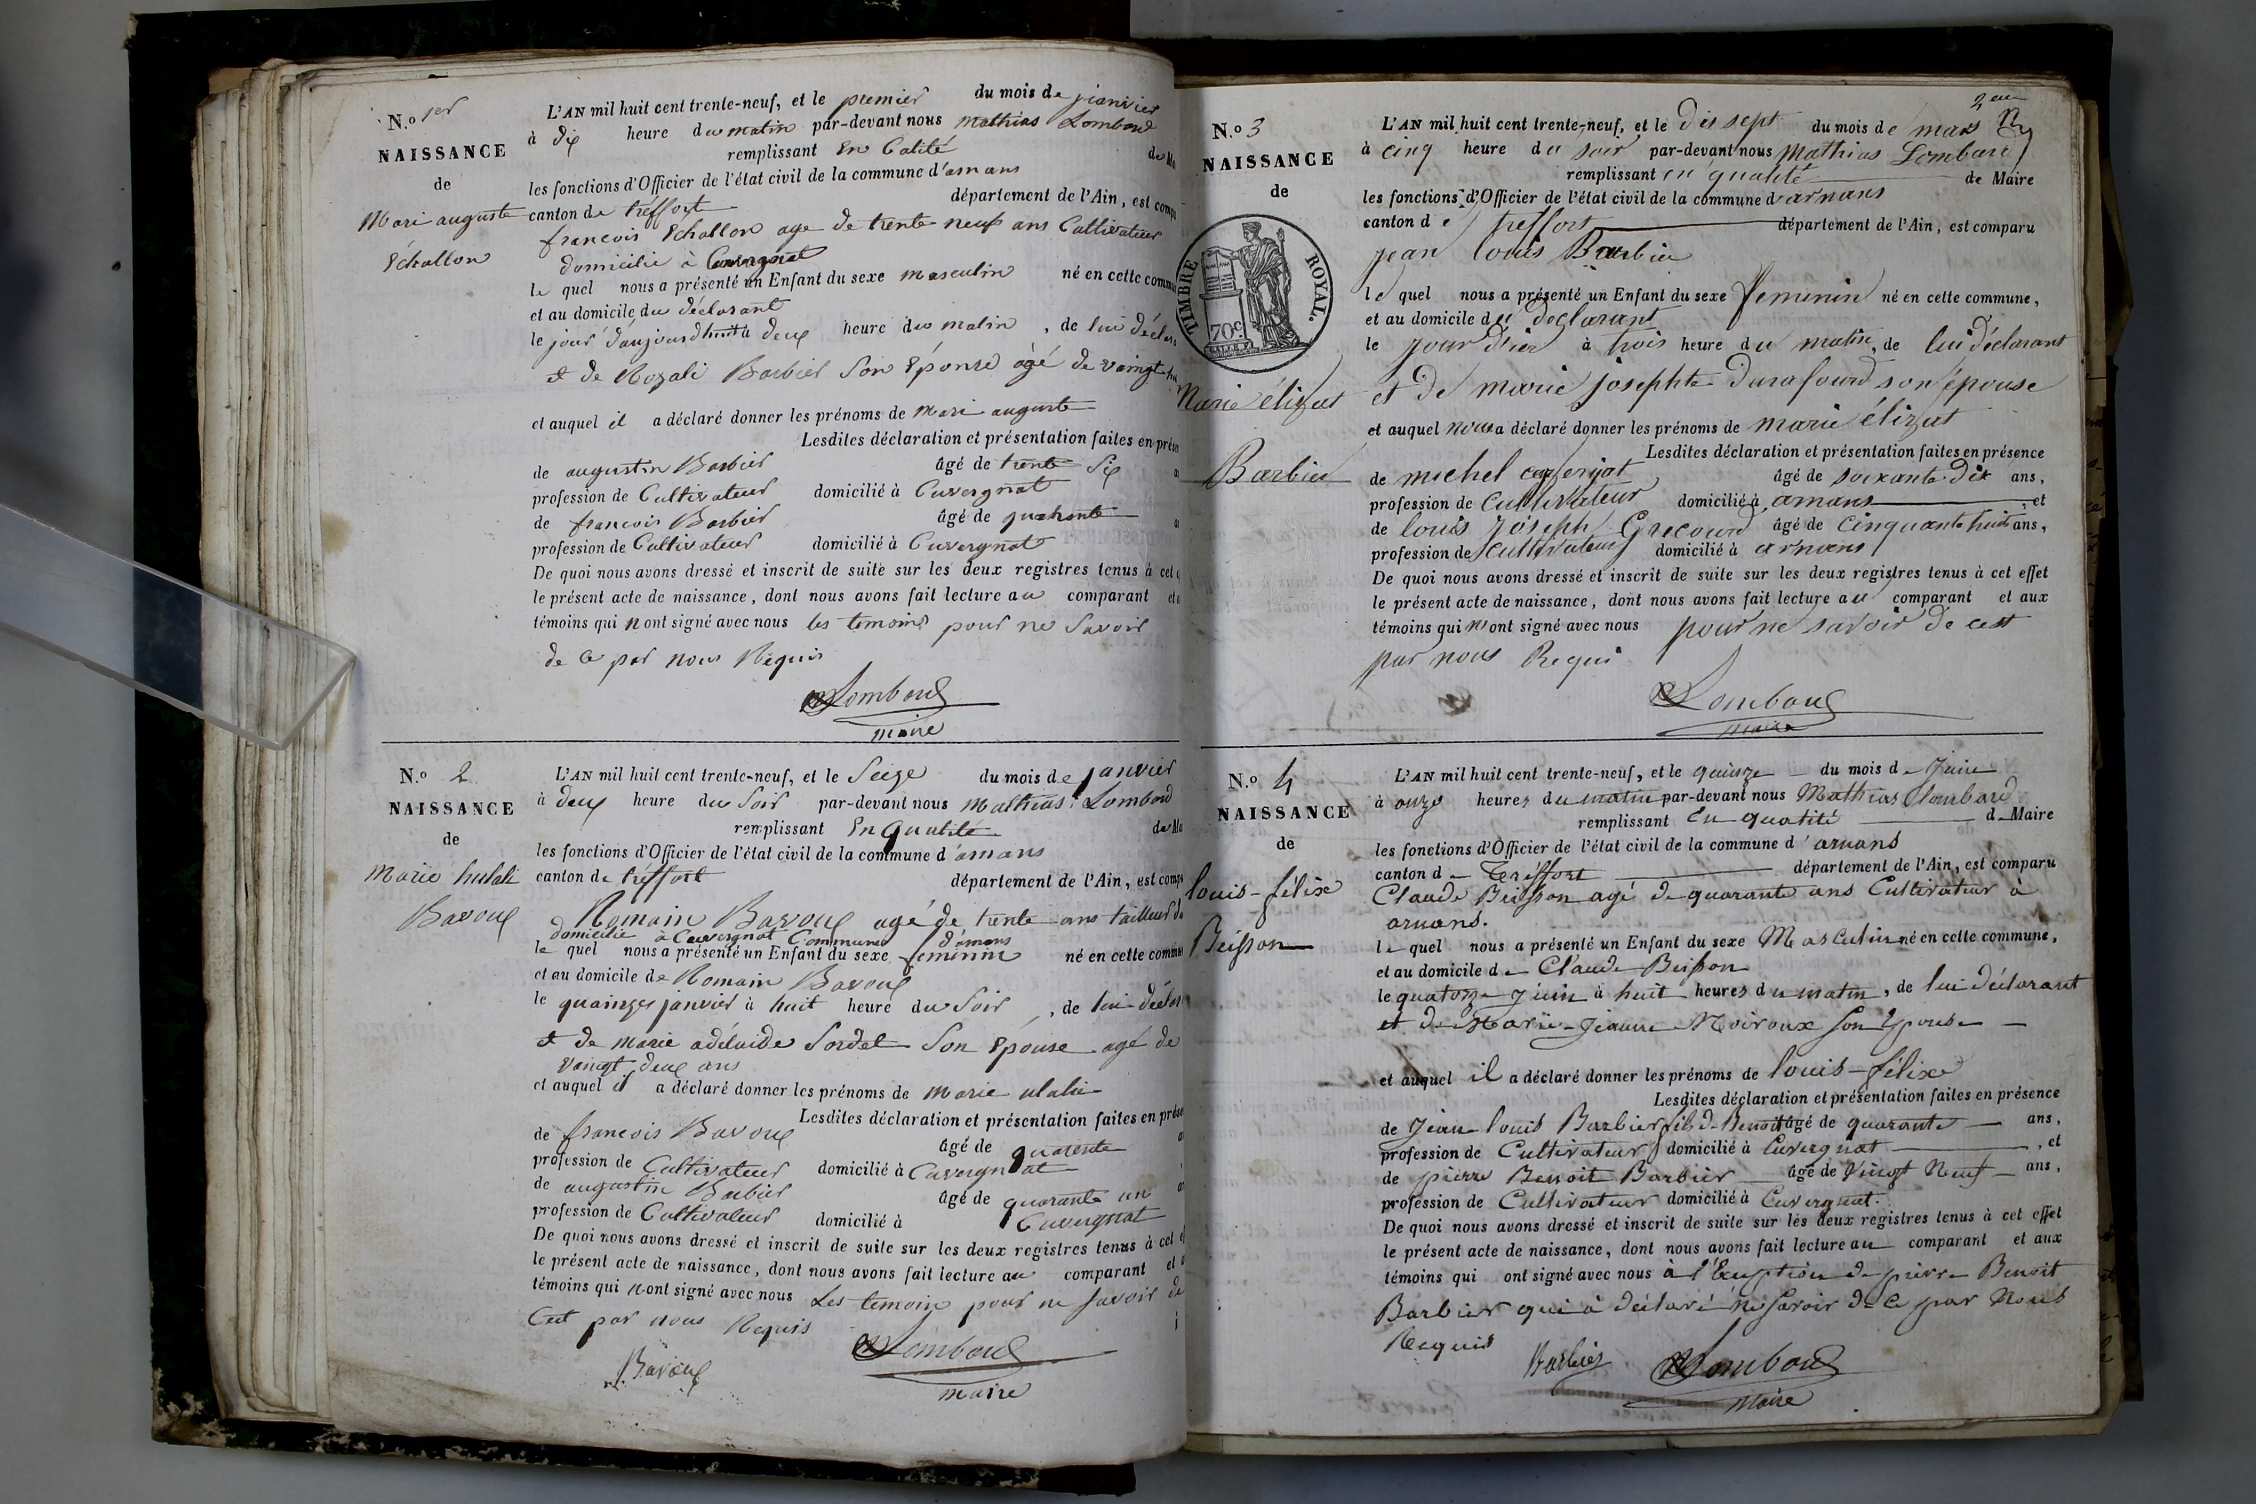 N.o 1er
NAISSANCE
de
Mari auguste
Echallon
L'AN mil huit cent trente-neuf, et le premier du mois de janvier
à dix heure du matin par-devant nous mathias Lombard
remplissant En Calité de Ma
les fonctions d'Officier de l'état civil de la commune d'arnans
canton de tréffort département de l'Ain, est compa
francois Echallon age de trente neuf ans Cultivateur
domicilié à Cuvergnat
le quel nous a présenté un Enfant du sexe masculin né en cette commu
et au domicile du déclarant
le jour d'aujourdhuit à deux heure du matin, de lui déclar
et de Rozali Barbier Son Epouse àgé de vaingt hu
et auquel il a déclaré donner les prénoms de mari auguste
Lesdites déclaration et présentation faites en prése
de augustin Barbier âgé de trente six a
profession de Cultivateur domicilié à Cuvergnat
de francois Barbier âgé de quarante a
profession de Cultivateur domicilié à Cuvergnat
De quoi nous avons dressé et inscrit de suite sur les deux registres tenus à cet e
le présent acte de naissance, dont nous avons fait lecture au comparant et a
témoins qui n ont signé avec nous les temoins pour ne Savoir
de ce par nous Requis
Lombard
maire
N.o 2
NAISSANCE
de
Marie hulali
Bavoux
L'AN mil huit cent trente-neuf, et le Seize du mois de janvier
à deux heure du Soir par-devant nous Mathias Lombard
remplissant En qualité de Ma
les fonctions d'Officier de l'état civil de la commune d'arnans
canton de tréffort département de l'Ain, est compa
Romain Bavoux agé de trente ans tailleur d
domicilié à Cuvergnat Commune d'arnans
le quel nous a présenté un Enfant du sexe feminin né en cette commun
et au domicile de Romain Bavoux
le quainze janvier à huit heure du Soir, de lui déclar
et de marie adélaide Sordet Son Epouse agé de
vaingt deux ans
et auquel il a déclaré donner les prénoms de marie ulalie
Lesdites déclaration et présentation faites en prése
de francois Bavoux âgé de quarente a
profession de Cultivateur domicilié à Cuvergnat
de augustin Barbier âgé de quarante un a
profession de Cultivateur domicilié à Cuvergnat
De quoi nous avons dressé et inscrit de suite sur les deux registres tenus à cet ef
le présent acte de naissance, dont nous avons fait lecture au comparant et a
témoins qui n ont signé avec nous Les temoins pour ne Savoir de
Cest par nous Requis
Bavoux Lombard
maire
2eme
N.o 3
NAISSANCE
de
TIMBRE ROYAL.
70c
Marie élizat
Barbier
L'AN mil huit cent trente-neuf, et le dis sept du mois de mars
à cinq heure du soir par-devant nous Mathias Lombard
remplissant en qualité de Maire
les fonctions d'Officier de l'état civil de la commune d'arnans
canton de treffort département de l'Ain, est comparu
jean louis Barbier
le quel nous a présenté un Enfant du sexe femenin né en cette commune,
et au domicile du declarant
le jour d'ier à trois heure du matin, de lui déclarant
et de marie josephte Durafourd son épouse
et auquel nous a déclaré donner les prénoms de marie élizat
Lesdites déclaration et présentation faites en présence
de michel âgé de soixante dix ans,
profession de cultivateur domicilié à arnans, et
de louis joseph Grecourd âgé de cinquante huit ans,
profession de cultivateur domicilié à arnans
De quoi nous avons dressé et inscrit de suite sur les deux registres tenus à cet effet
le présent acte de naissance, dont nous avons fait lecture au comparant et aux
témoins qui n ont signé avec nous pour ne savoir de cest
par nous Requi
Lombard
maire
N.o 4
NAISSANCE
de
louis-félixe
Buisson
L'AN mil huit cent trente-neuf, et le quinze du mois de Juin
à onze heures du matin par-devant nous Mathias Lombard
remplissant En qualité d Maire
les fonctions d'Officier de l'état civil de la commune d'arnans
canton de Tréffort département de l'Ain, est comparu
Claude Buisson agé de quarante ans Cultivateur à
arnans.
le quel nous a présenté un Enfant du sexe Masculin né en cette commune,
et au domicile de Claude Buisson
le quatorze Juin à huit heures du matin, de lui déclarant
et de Marie-Jeanne Moiroux son Epouse
et auquel il a déclaré donner les prénoms de louis-félixe
Lesdites déclaration et présentation faites en présence
de Jean louis Barbier fils de Benoit âgé de quarante ans,
profession de Cultivateur domicilié à Cuvergnat, et
de pierre Benoit Barbier âgé de Vingt Neuf ans,
profession de Cultivateur domicilié à Cuvergnat.
De quoi nous avons dressé et inscrit de suite sur les deux registres tenus à cet effet
le présent acte de naissance, dont nous avons fait lecture au comparant et aux
témoins qui ont signé avec nous à l'Exeption de pierre Benoit
Barbier qui à déclaré ne Savoir de ce par Nous
Requis
Barbier Lombard
Maire